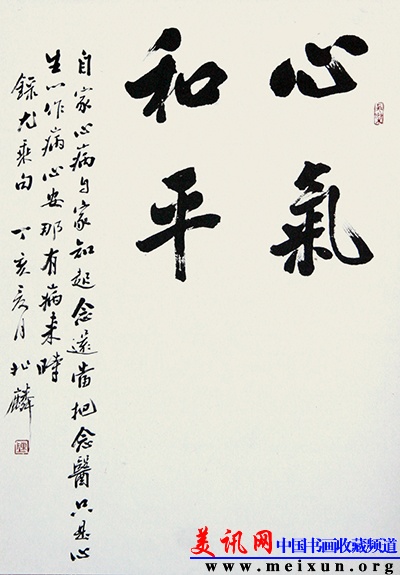 心氣
和平
自家心病自家知起念還當把念醫只是心
生心作病心安那有病來時
錄尤乘句 丁亥 月 麟
美讯网 中国书画收藏频道
www.meixun.org